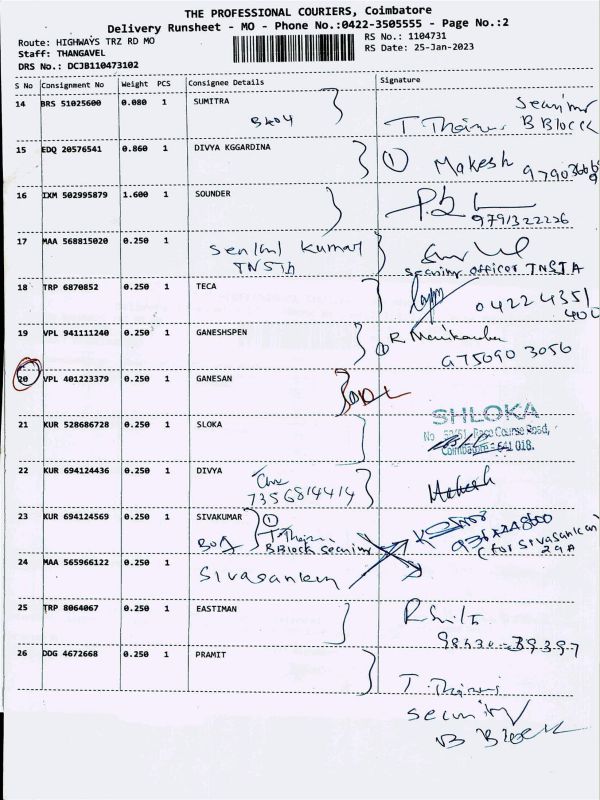 THE PROFESSIONAL COURIERS, Coimbatore
Delivery Runsheet - MO - Phone No.:0422-3505555 - Page No.:2
Route: HIGHWAYS TRZ RD MO
RS No.: 1104731
Staff: THANGAVEL
RS Date: 25-Jan-2023
DRS No.: DCJB110473102
S No Consignment No Weight PCS Consignee Details Signature
14 BRS 51025600 0.080 1 SUMITRA
B Block
15 EDQ 20576541 0.860 1 DIVYA KGGARDINA
1 Makesh
16 IXM 502995879 1.600 1 SOUNDER
9791322226
17 MAA 568815020 0.250 1 Senthil Kumar
TNSTA
officer TNSTA
18 TRP 6870852 0.250 1 TECA
04224351
400
19 VPL 941111240 0.250 1 GANESHSPEN
1 R
975090 3056
20 VPL 401223379 0.250 1 GANESAN
21 KUR 528686728 0.250 1 SLOKA
SHLOKA
Race Course Road,
Coimbatore - 641 018.
22 KUR 694124436 0.250 1 DIVYA
7356814414
Makesh
23 KUR 694124569 0.250 1 SIVAKUMAR 1
B Block
(for Sivasankari
29A
24 MAA 565966122 0.250 1
25 TRP 8064067 0.250 1 EASTIMAN
26 DDG 4672668 0.250 1 PRAMIT
security
B Block